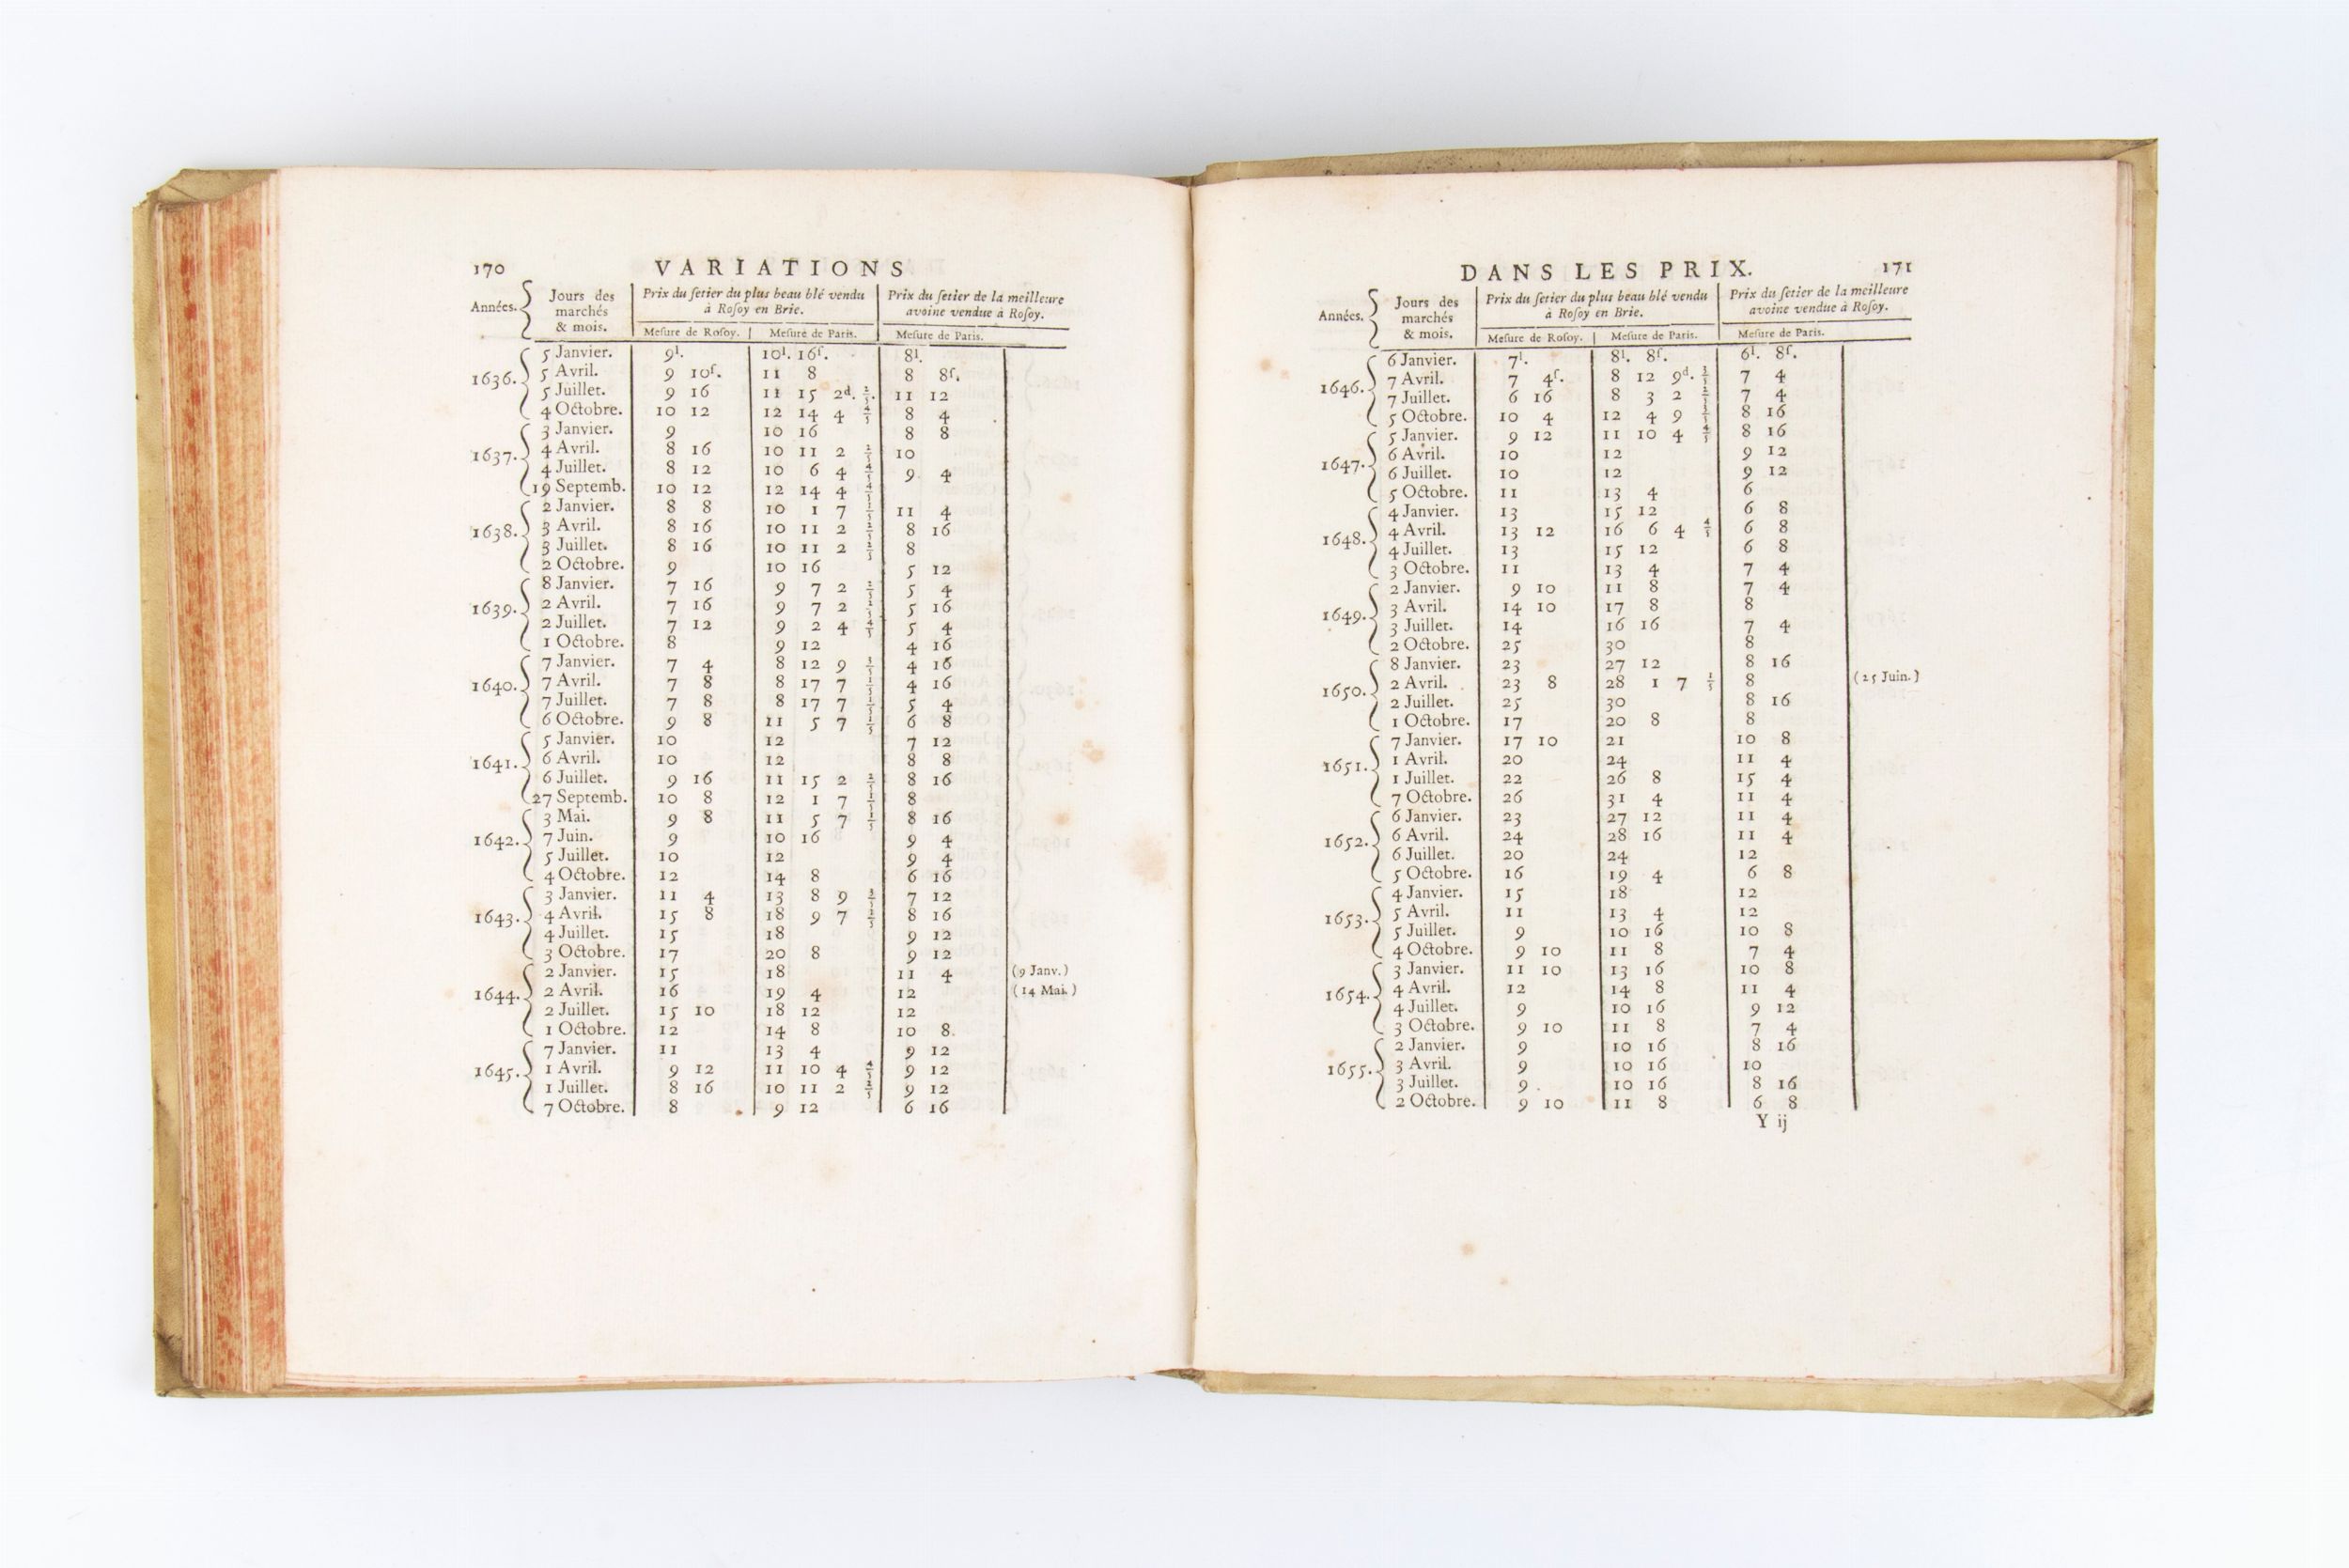 170 VARIATIONS
Années. Jours des marchés & mois. Prix du ſetier du plus beau blé vendu à Roſoy en Brie. Prix du ſetier de la meilleure avoine vendue à Roſoy.
Meſure de Roſoy. Meſure de Paris. Meſure de Paris.
1636. 5 Janvier. 9l. 10l. 16ſ. 8l.
5 Avril. 9 10ſ. 11 8 8 8ſ.
5 Juillet. 9 16 11 15 2d. 2/5. 11 12
4 Octobre. 10 12 12 14 4 4/5 8 4
1637. 3 Janvier. 9 10 16 8 8
4 Avril. 8 16 10 11 2 2/5 10
4 Juillet. 8 12 10 6 4 4/5 9 4
19 Septemb. 10 12 12 14 4 4/5
1638. 2 Janvier. 8 8 10 1 7 1/5 11 4
3 Avril. 8 16 10 11 2 2/5 8 16
3 Juillet. 8 16 10 11 2 2/5 8
2 Octobre. 9 10 16 5 12
1639. 8 Janvier. 7 16 9 7 2 2/5 5 4
2 Avril. 7 16 9 7 2 2/5 5 16
2 Juillet. 7 12 9 2 4 4/5 5 4
1 Octobre. 8 9 12 4 16
1640. 7 Janvier. 7 4 8 12 9 3/5 4 16
7 Avril. 7 8 8 17 7 1/5 4 16
7 Juillet. 7 8 8 17 7 1/5 5 4
6 Octobre. 9 8 11 5 7 1/5 6 8
1641. 5 Janvier. 10 12 7 12
6 Avril. 10 12 8 8
6 Juillet. 9 16 11 15 2 2/5 8 16
27 Septemb. 10 8 12 1 7 1/5 8
1642. 3 Mai. 9 8 11 5 7 1/5 8 16
7 Juin. 9 10 16 9 4
5 Juillet. 10 12 9 4
4 Octobre. 12 14 8 6 16
1643. 3 Janvier. 11 4 13 8 9 3/5 7 12
4 Avril. 15 8 18 9 7 1/5 8 16
4 Juillet. 15 18 9 12
3 Octobre. 17 20 8 9 12
1644. 2 Janvier. 15 18 11 4 (9 Janv.)
2 Avril. 16 19 4 12 (14 Mai.)
2 Juillet. 15 10 18 12 12
1 Octobre. 12 14 8 10 8.
1645. 7 Janvier. 11 13 4 9 12
1 Avril. 9 12 11 10 4 4/5 9 12
1 Juillet. 8 16 10 11 2 2/5 9 12
7 Octobre. 8 9 12 6 16
DANS LES PRIX. 171
Années. Jours des marchés & mois. Prix du ſetier du plus beau blé vendu à Roſoy en Brie. Prix du ſetier de la meilleure avoine vendue à Roſoy.
Meſure de Roſoy. Meſure de Paris. Meſure de Paris.
1646. 6 Janvier. 7l. 8l. 8ſ. 6l. 8ſ.
7 Avril. 7 4ſ. 8 12 9d. 3/5 7 4
7 Juillet. 6 16 8 3 2 2/5 7 4
5 Octobre. 10 4 12 4 9 3/5 8 16
1647. 5 Janvier. 9 12 11 10 4 4/5 8 16
6 Avril. 10 12 9 12
6 Juillet. 10 12 9 12
5 Octobre. 11 13 4 6
1648. 4 Janvier. 13 15 12 6 8
4 Avril. 13 12 16 6 4 4/5 6 8
4 Juillet. 13 15 12 6 8
3 Octobre. 11 13 4 7 4
1649. 2 Janvier. 9 10 11 8 7 4
3 Avril. 14 10 17 8 8
3 Juillet. 14 16 16 7 4
2 Octobre. 25 30 8
1650. 8 Janvier. 23 27 12 8 16
2 Avril. 23 8 28 1 7 1/5 8 (25 Juin.)
2 Juillet. 25 30 8 16
1 Octobre. 17 20 8 8
1651. 7 Janvier. 17 10 21 10 8
1 Avril. 20 24 11 4
1 Juillet. 22 26 8 15 4
7 Octobre. 26 31 4 11 4
1652. 6 Janvier. 23 27 12 11 4
6 Avril. 24 28 16 11 4
6 Juillet. 20 24 12
5 Octobre. 16 19 4 6 8
1653. 4 Janvier. 15 18 12
5 Avril. 11 13 4 12
5 Juillet. 9 10 16 10 8
4 Octobre. 9 10 11 8 7 4
1654. 3 Janvier. 11 10 13 16 10 8
4 Avril. 12 14 8 11 4
4 Juillet. 9 10 16 9 12
3 Octobre. 9 10 11 8 7 4
1655. 2 Janvier. 9 10 16 8 16
3 Avril. 9 10 16 10
3 Juillet. 9 10 16 8 16
2 Octobre. 9 10 11 8 6 8
Y ij